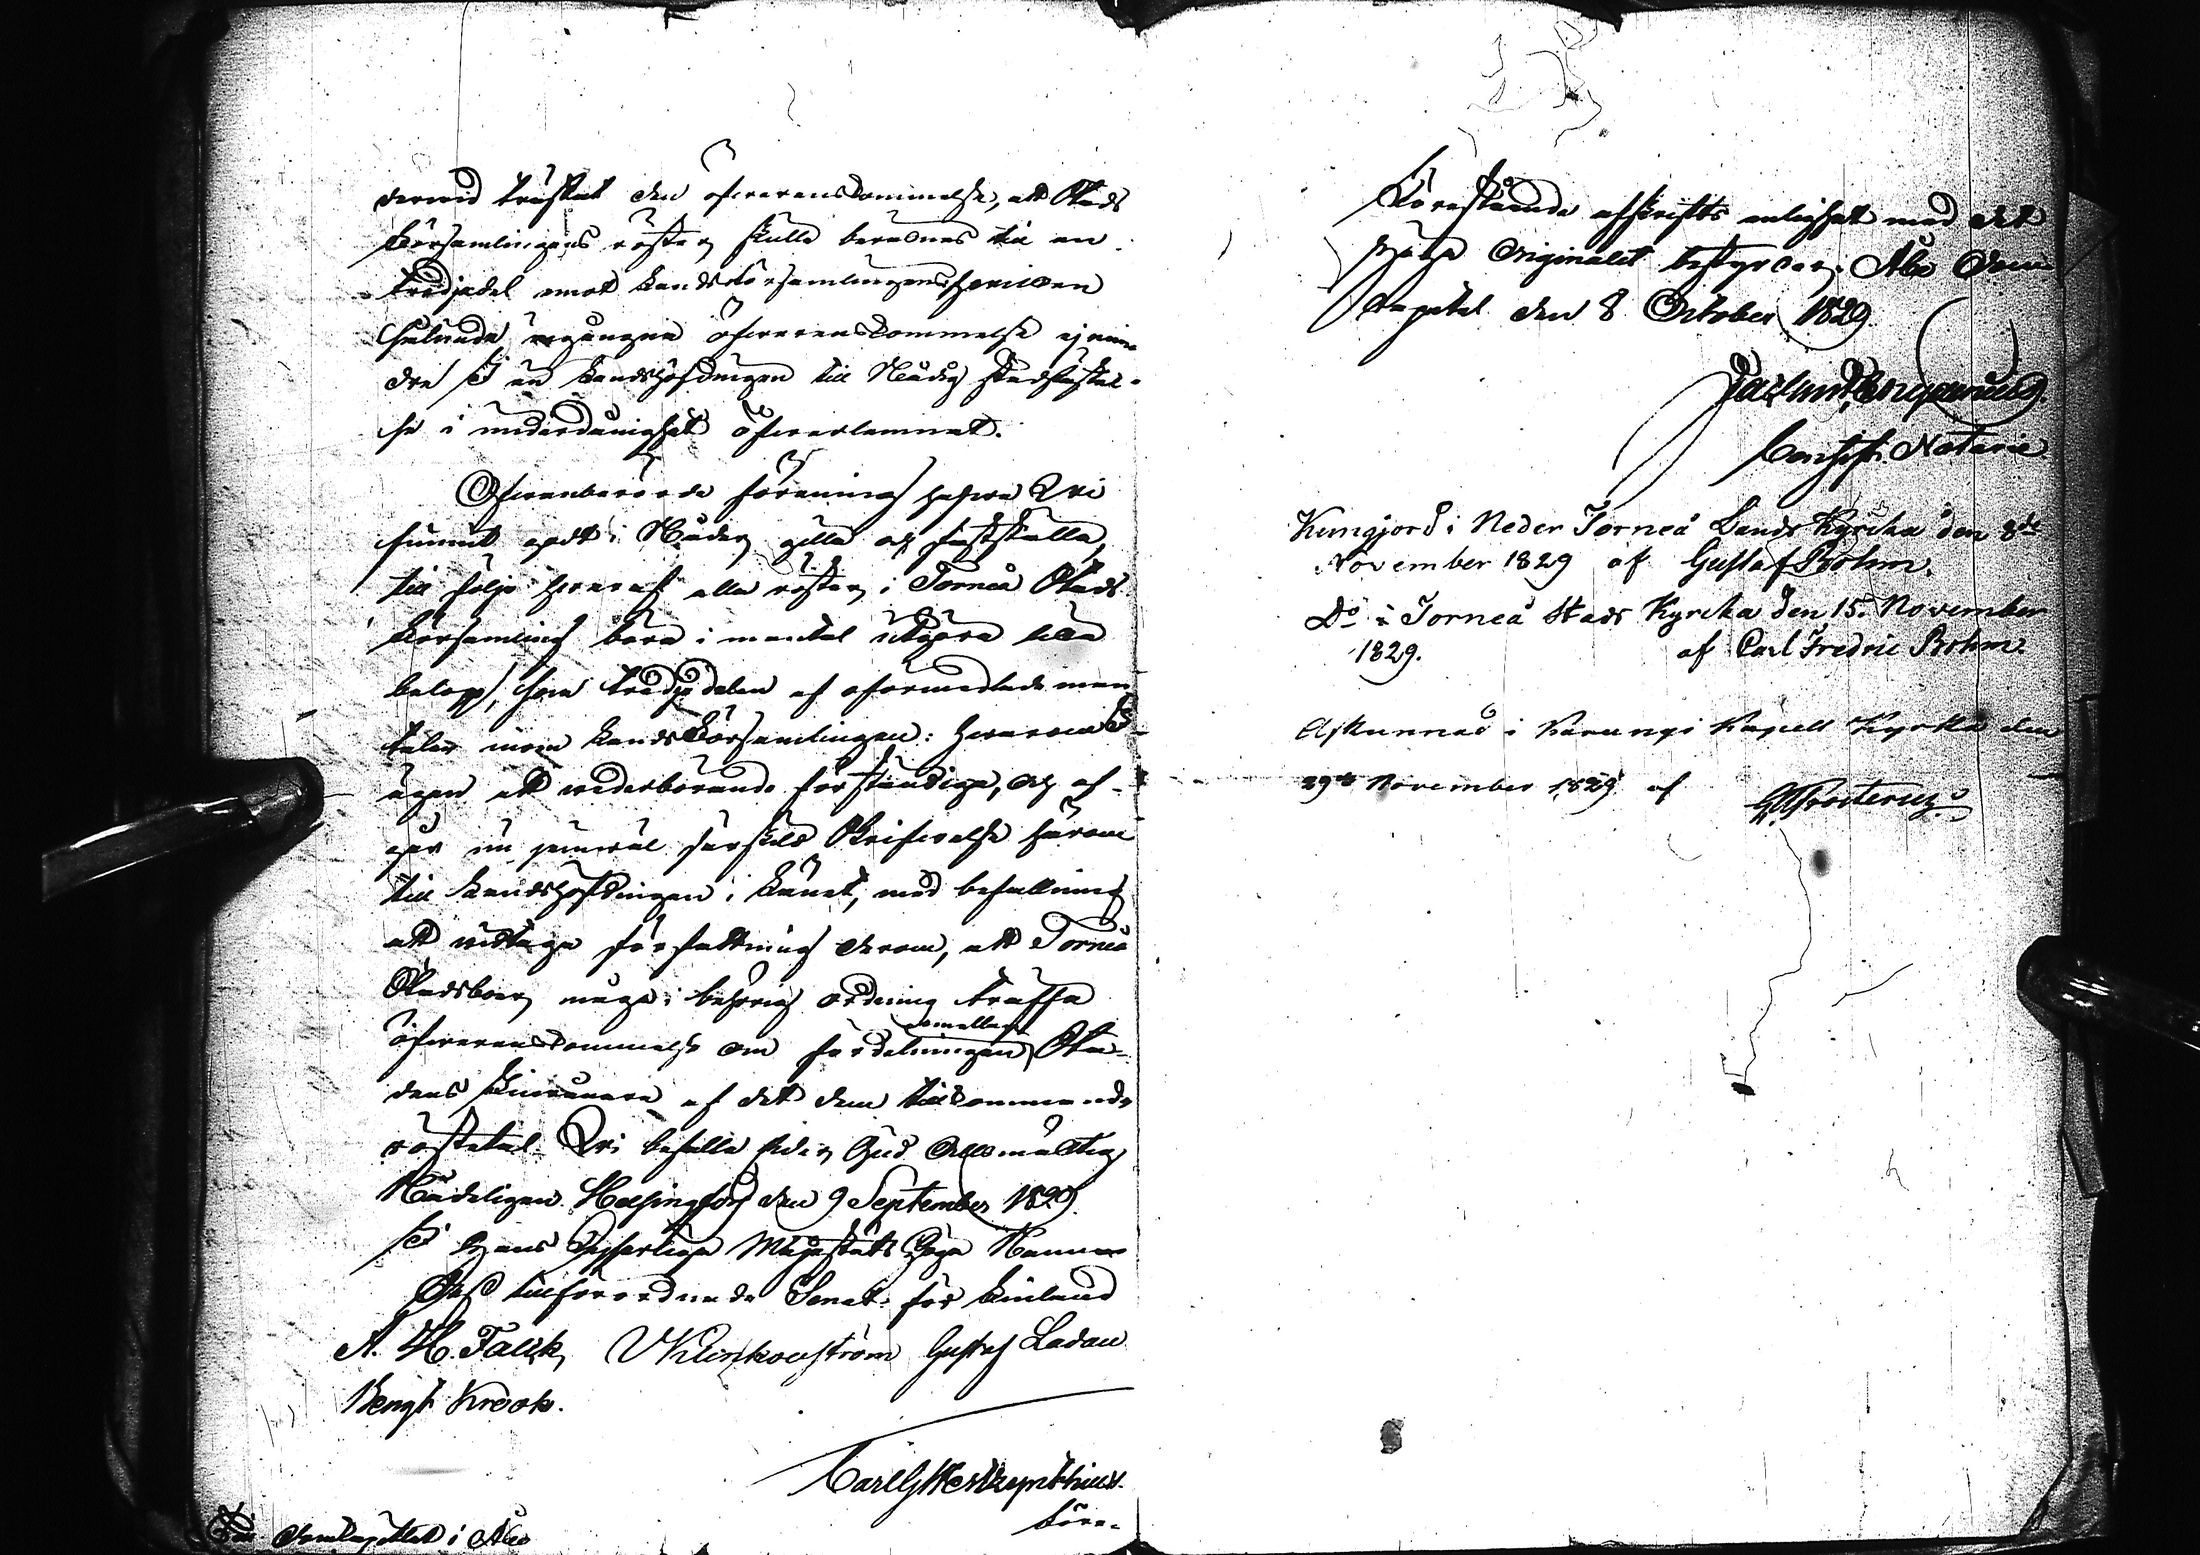 dervid träffat den öfverenskommelse, att Stads
Församlingens röster skulle beräknas till en
tredjedel emot Landsförsamlingens; hvilken
sålunda ingångna öfverenskommelse ej min-
dre N än Landshöfdingen till Nådig stadfästel-
se i underdånighet öfverlemnat.
Ofvanberörde förening hafve Vi
funnit godt i Nåder gilla och fastställa,
till följe hvaraf alla röster i Torneå Stads
Församling böra i mantal utgöra lika
belopp, som tredjedelen af oförmedlade man-
talen inom Landsförsamlingen: hvarom N
ägen att vederbörande förständiga, och af-
går nu jemväl särskild Skrifvelse härom
till Landshöfdingen i Länet, med befallning
att vidtaga författning derom, att Torneå
Stadsboer måge i behörig ordning träffa
öfverenskommelse om fördelningen emellan Sta-
dens Invånare af det dem tillkommande
röstetal. Vi befalle Eder Gud Allsmäktig
Nådeligen. Helsingfors den 9 September 1829.
I Hans Kejserliga Majestäts Höga Namn
Dess tillförordnade Senat för Finland
A. H. Falck, V Klinkowström Gustaf Ladau
Bengt Krook.
Carl G
Före-
Till Domkapitlet i Åbo
Förestående afskrifts enlighet med det
Originalet bestyrker. Åbo Dom
Capitel den 8 October 1829
Consist. Notarie
Kungjord i Neder Torneå Lands Kyrcka den 8de
November 1829 af Gustaf Brohm.
Do i Torneå Stads Kyrcka den 15. November
1829. af Carl Fredric Brohm.
Afkunnad i Karungi Kapell Kyrka den
29de November 1829 af